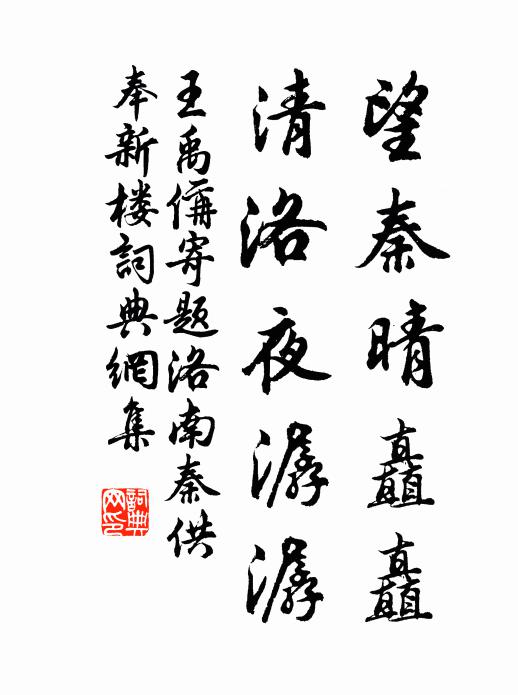 望秦晴矗矗
清洛夜潺潺
王禹偁寄题洛南秦供
奉新楼詞典網集
詞典
网印